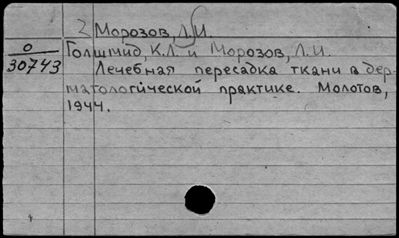 2 Морозов, Л.И.
О
30743
Голшмид, К.Л. и Морозов, Л.И.
Лечебная пересадка ткани в дер-
матологической практике. Молотов,
1944.